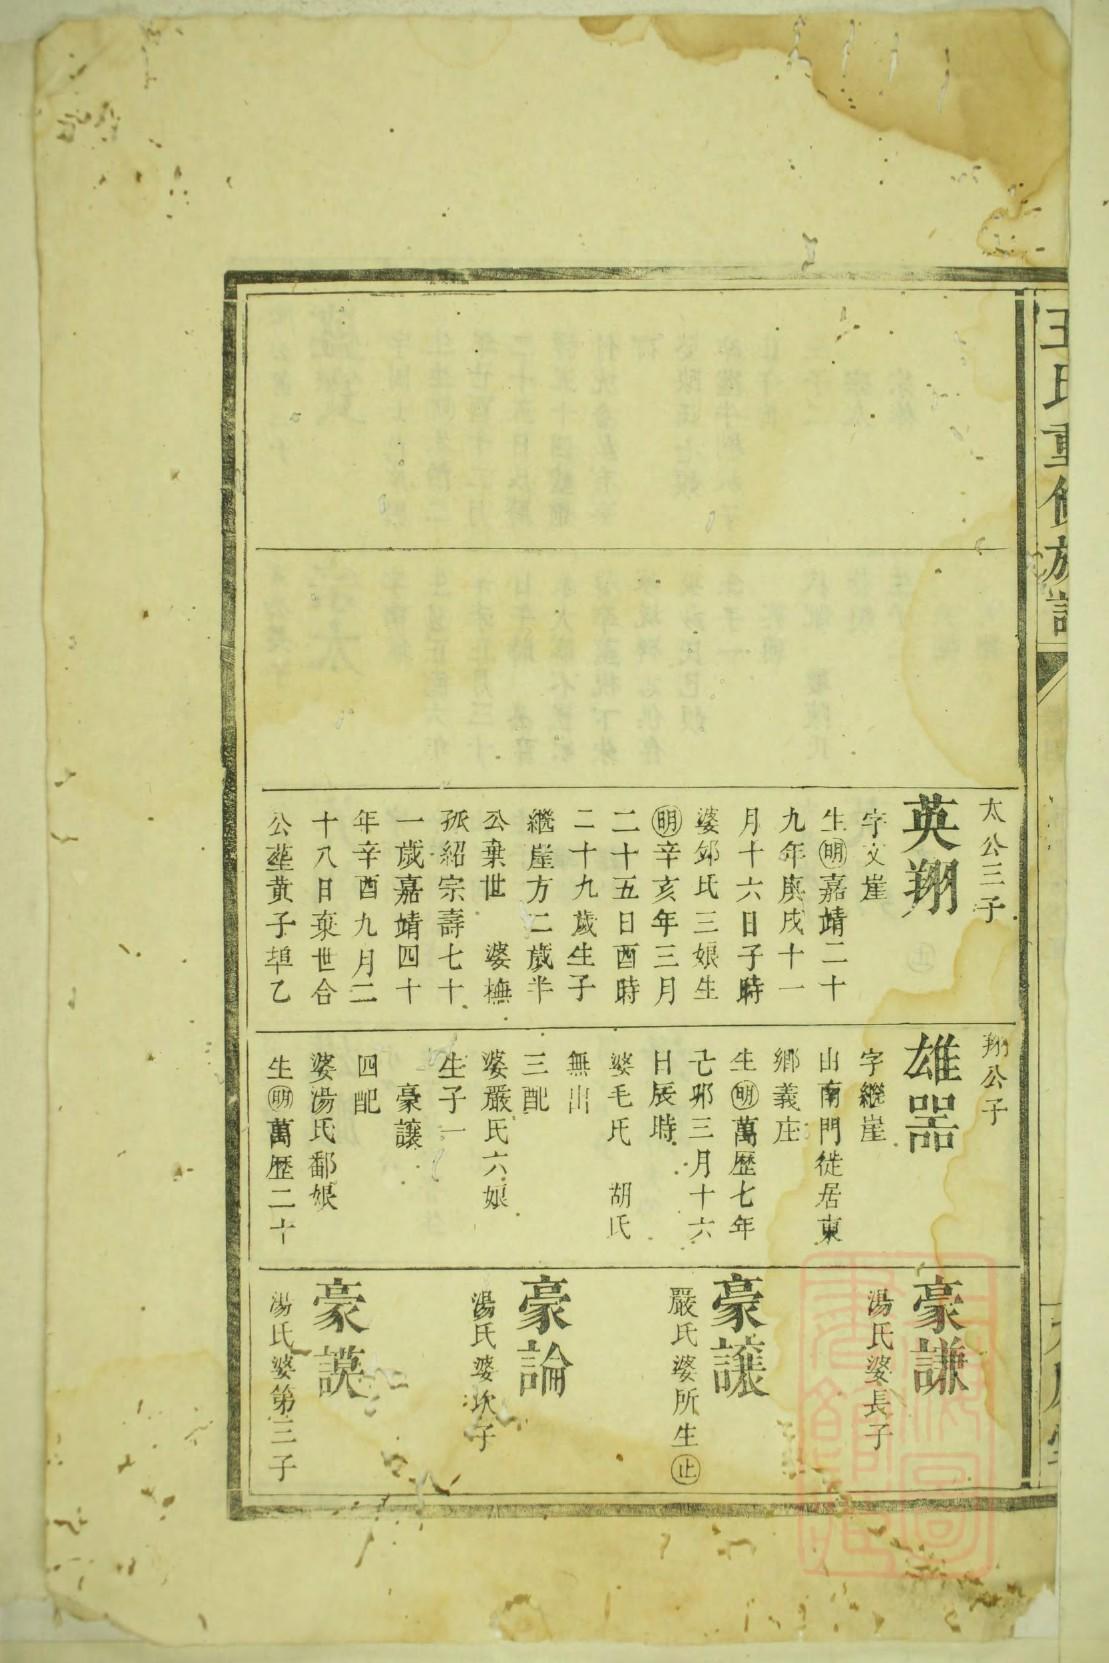 王氏重修族譜
太公三子
英翔
字文崖
生明嘉靖二十
九年庚戌十一
月十六日子時
婆邹氏三娘生
明辛亥年三月
二十五日酉時
二十九歲生子
繼崖方二歲半
公棄世　婆撫
孤紹宗壽七十
一歲嘉靖四十
年辛酉九月二
十八日棄世合
公塟黃子埠乙
翔公子
雄器
字繼崖
山南門徙居東
鄉義庄
生明萬歷七年
七邜三月十六
日辰時
婆毛氏　胡氏
無出
三配
婆嚴氏六娘
生子一
豪讓
四配
婆湯氏鄱娘
生明萬歷二十
豪謙
湯氏婆長子
豪讓
嚴氏婆所生止
豪論
湯氏婆次子
豪謨
湯氏婆第三子